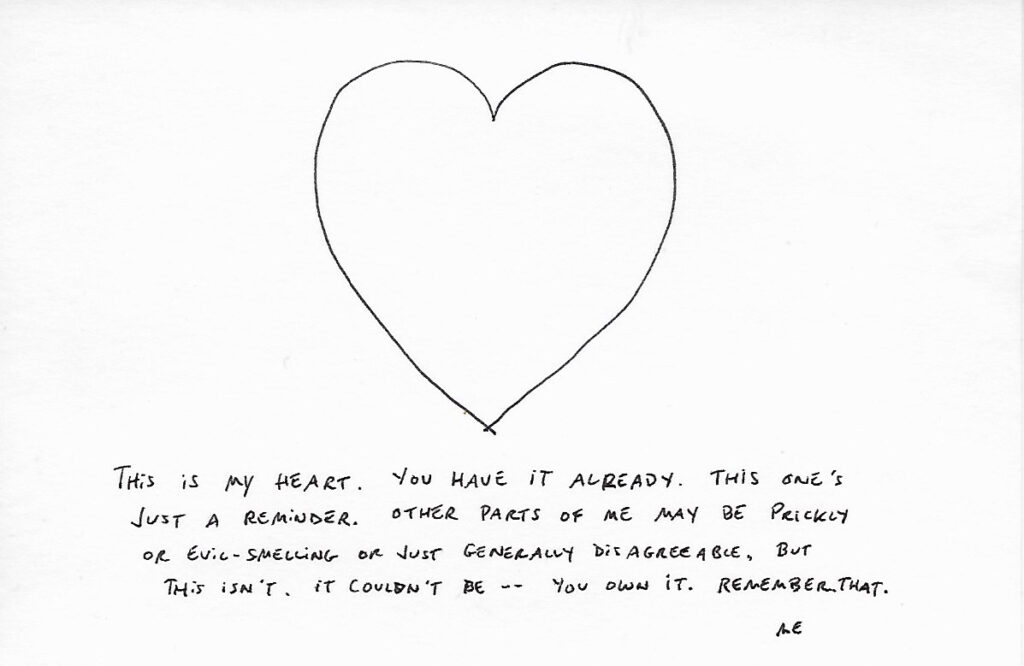 THIS IS MY HEART. YOU HAVE IT ALREADY. THIS ONE'S
JUST A REMINDER. OTHER PARTS OF ME MAY BE PRICKLY
OR EVIL-SMELLING OR JUST GENERALLY DISAGREEABLE, BUT
THIS ISN'T. IT COULDN'T BE -- YOU OWN IT. REMEMBER THAT.
ME